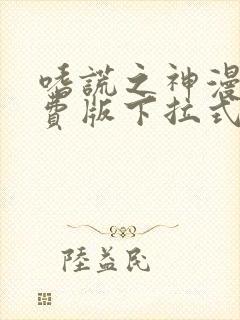 嗜謊之神漫
費版下拉式
陸益民